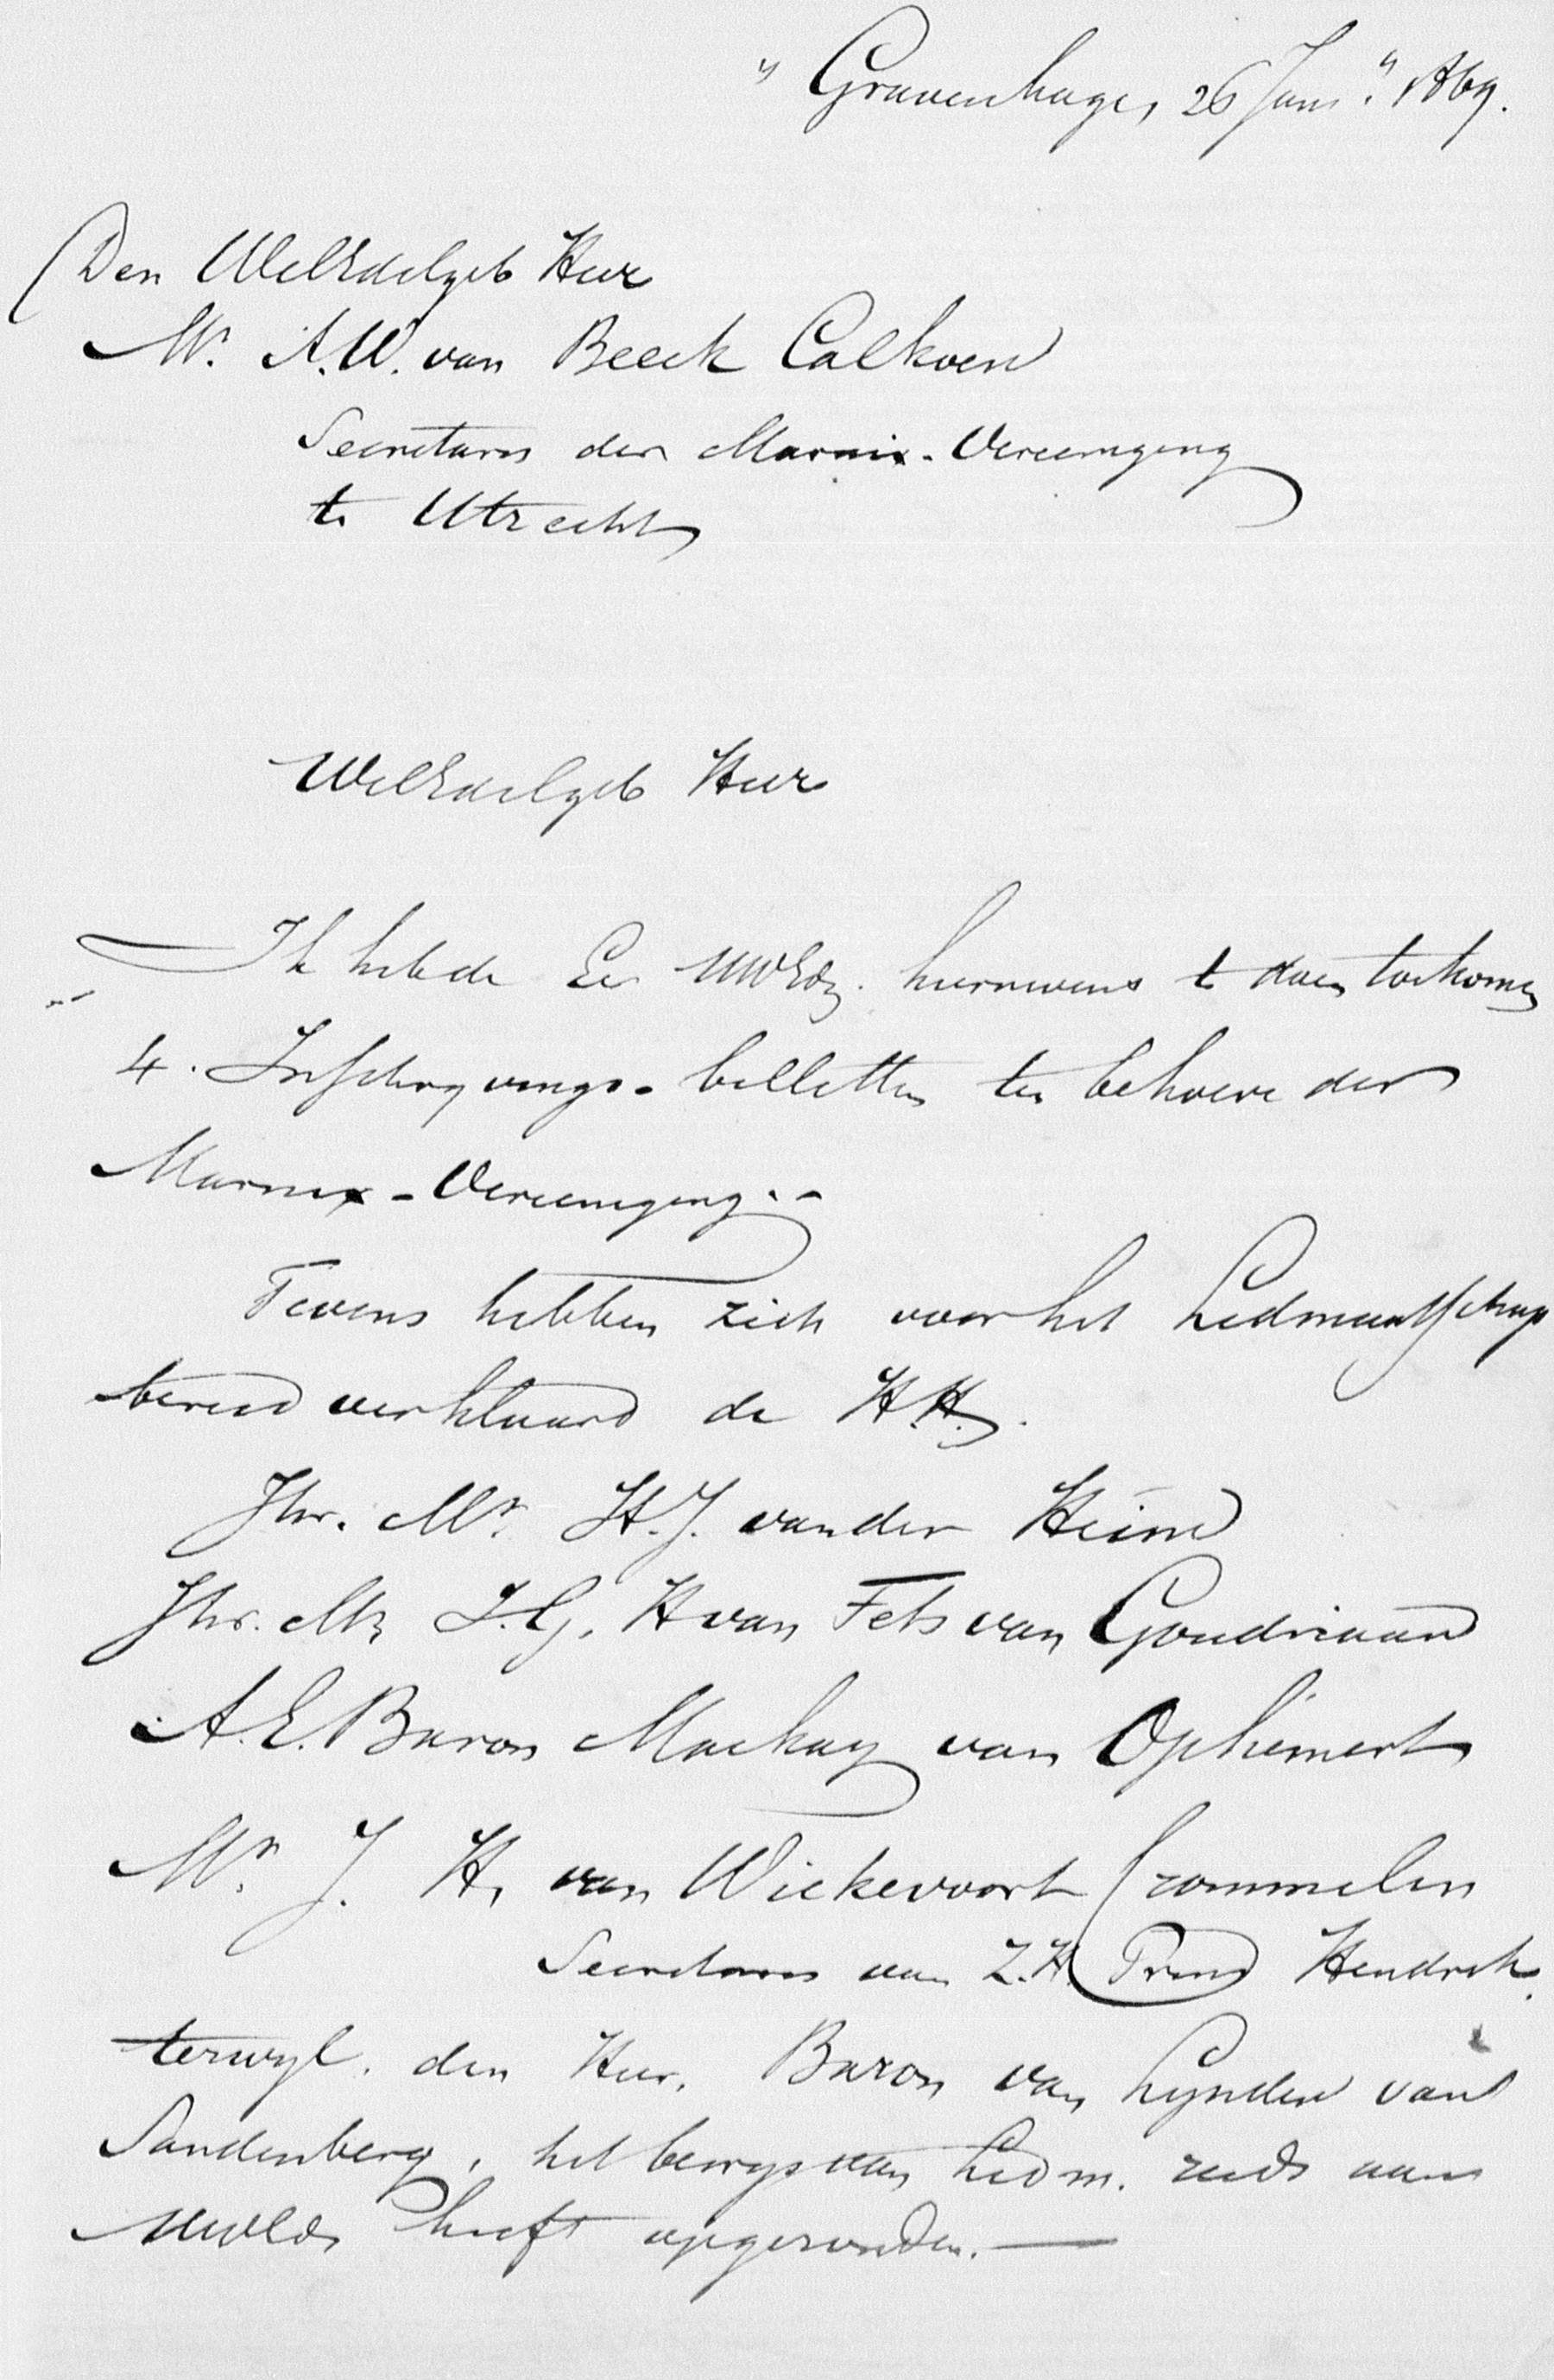 "Gravenhage, 26 Jan." 1869.
Den WelEdelgeb Heer
Mr. A.W. van Beeck Calkoen
Secretaris der Marnix-Vereeniging
te Utrecht
WelEdelgeb Heer
Ik heb de Eer UWEdg. hiernevens te doen toekomen
4. Inschryvings-billetten ten behoeve der
Marnix-Vereeniging.-
Tevens hebben zich voor het Lidmaatschap
bereid verklaard de H.H.
Jhr. Mr. H.J. van der Heim
Jhr. Mr J.G. H van Tets van Goudriaan
A.E. Baron Mackay van Ophemert
Mr. J. H. van Wickevoort Crommelin
Secretaris van Z.H. Prins Hendrik.
terwyl. den Heer. Baron van Lynden van
Sandenberg, het bewys van Lidm. reeds aan
heeft opgezonden. —